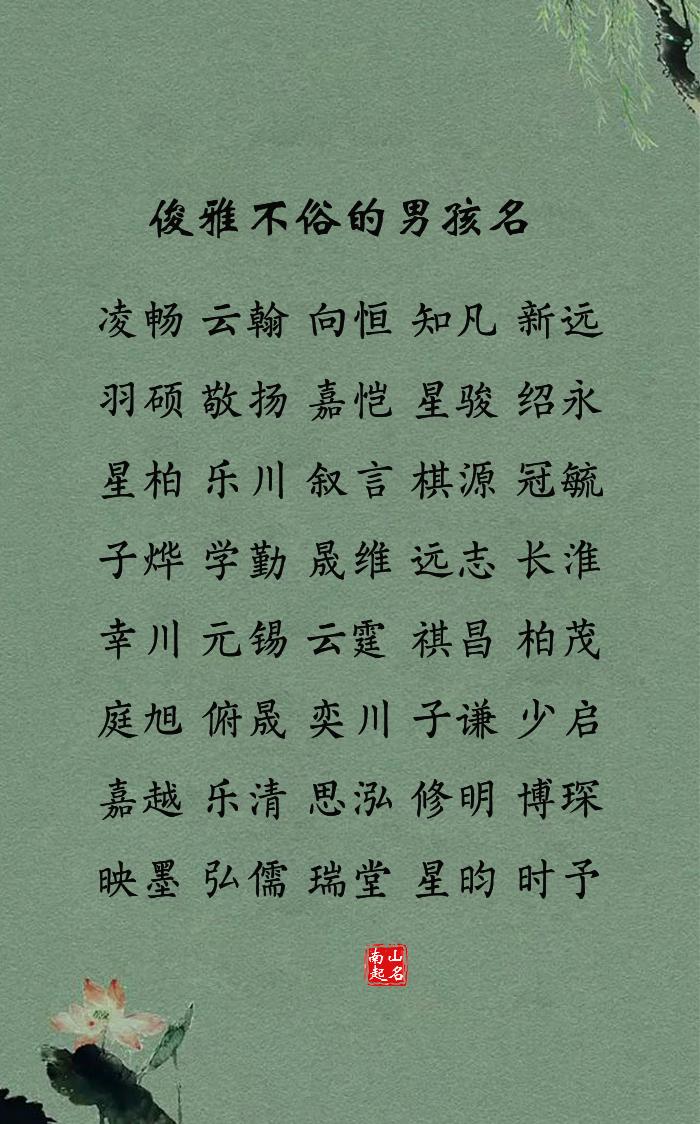 俊雅不俗的男孩名
凌畅 云翰 向恒 知凡 新远
羽硕 敬扬 嘉恺 星骏 绍永
星柏 乐川 叙言 棋源 冠毓
子烨 学勤 晟维 远志 长淮
幸川 元锡 云霆 祺昌 柏茂
庭旭 俯晟 奕川 子谦 少启
嘉越 乐清 思泓 修明 博琛
映墨 弘儒 瑞堂 星昀 时予
南山
起名